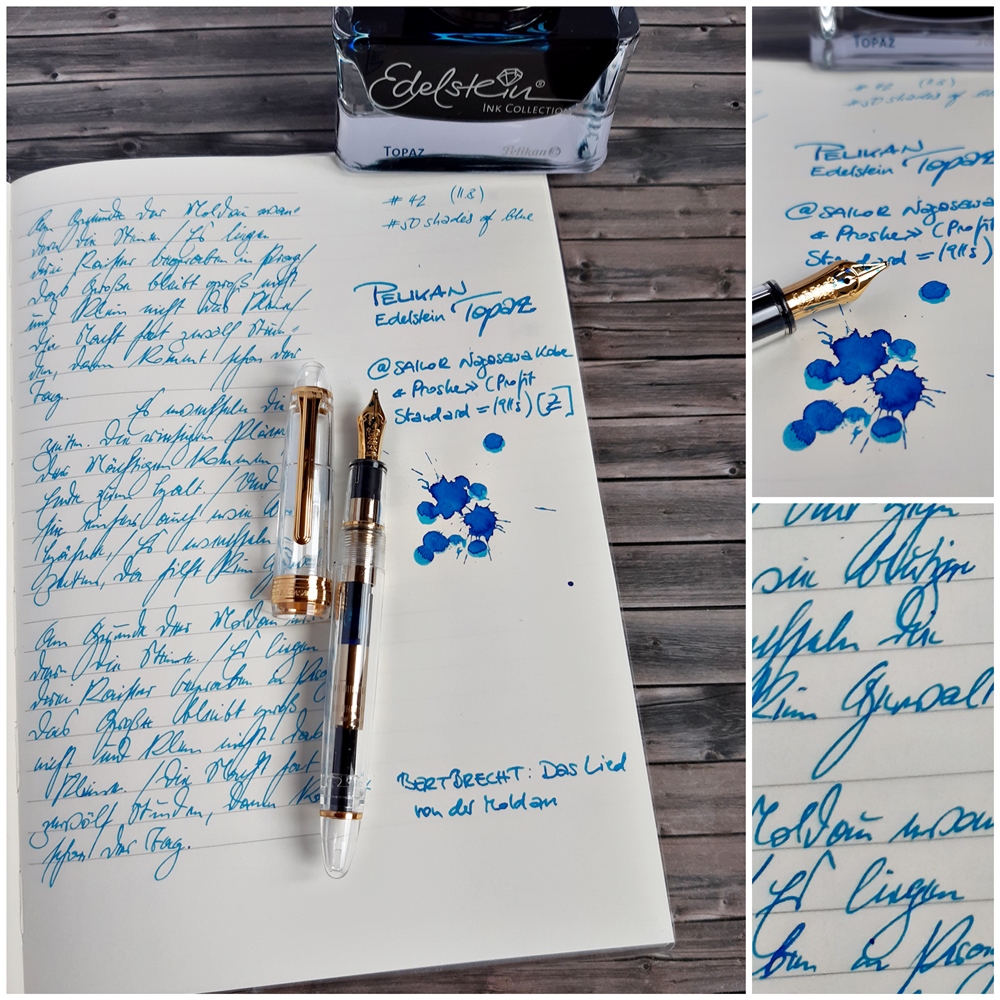 Edelstein®
INK COLLECTION
TOPAZ
Pelikan
Am Grunde der Moldau wan=
dern die Steine / Es liegen
drei Kaiser begraben in Prag
Das Große bleibt groß nicht
und klein nicht das Kleine/
Die Nacht hat zwölf Stun=
den, dann kommt schon der
Tag.
Es wechseln die
Zeiten. Die riesigen Pläne
der Mächtigen kommen
Ende zum Halt. / Und
auch wie
Es wechseln
Zeiten, da hilft kein
Am Grunde der Moldau
dern die Steine. / Es liegen
drei Kaiser begraben in Prag
das Große bleibt groß
nicht und klein nicht das
Kleine. / Die Nacht hat
zwölf Stunden, dann
schon der Tag.
#42 (11.8)
#50 shades of blue
PELIKAN
Edelstein Topaz
@SAILOR Nagasawa Kobe
« Proske» (Profit
Standard = 1911s) [Z]
BERT BRECHT: Das Lied
von der Moldau
TOPAZ
#42 (11.8)
#50 shades of blue
PELIKAN
Edelstein Topaz
@SAILOR Nagasawa
« Proske» (Profit
Standard = 1911s)
sie blutigen
wechseln die
kein Gewalt
Moldau wan
/Es liegen
ben in Prag